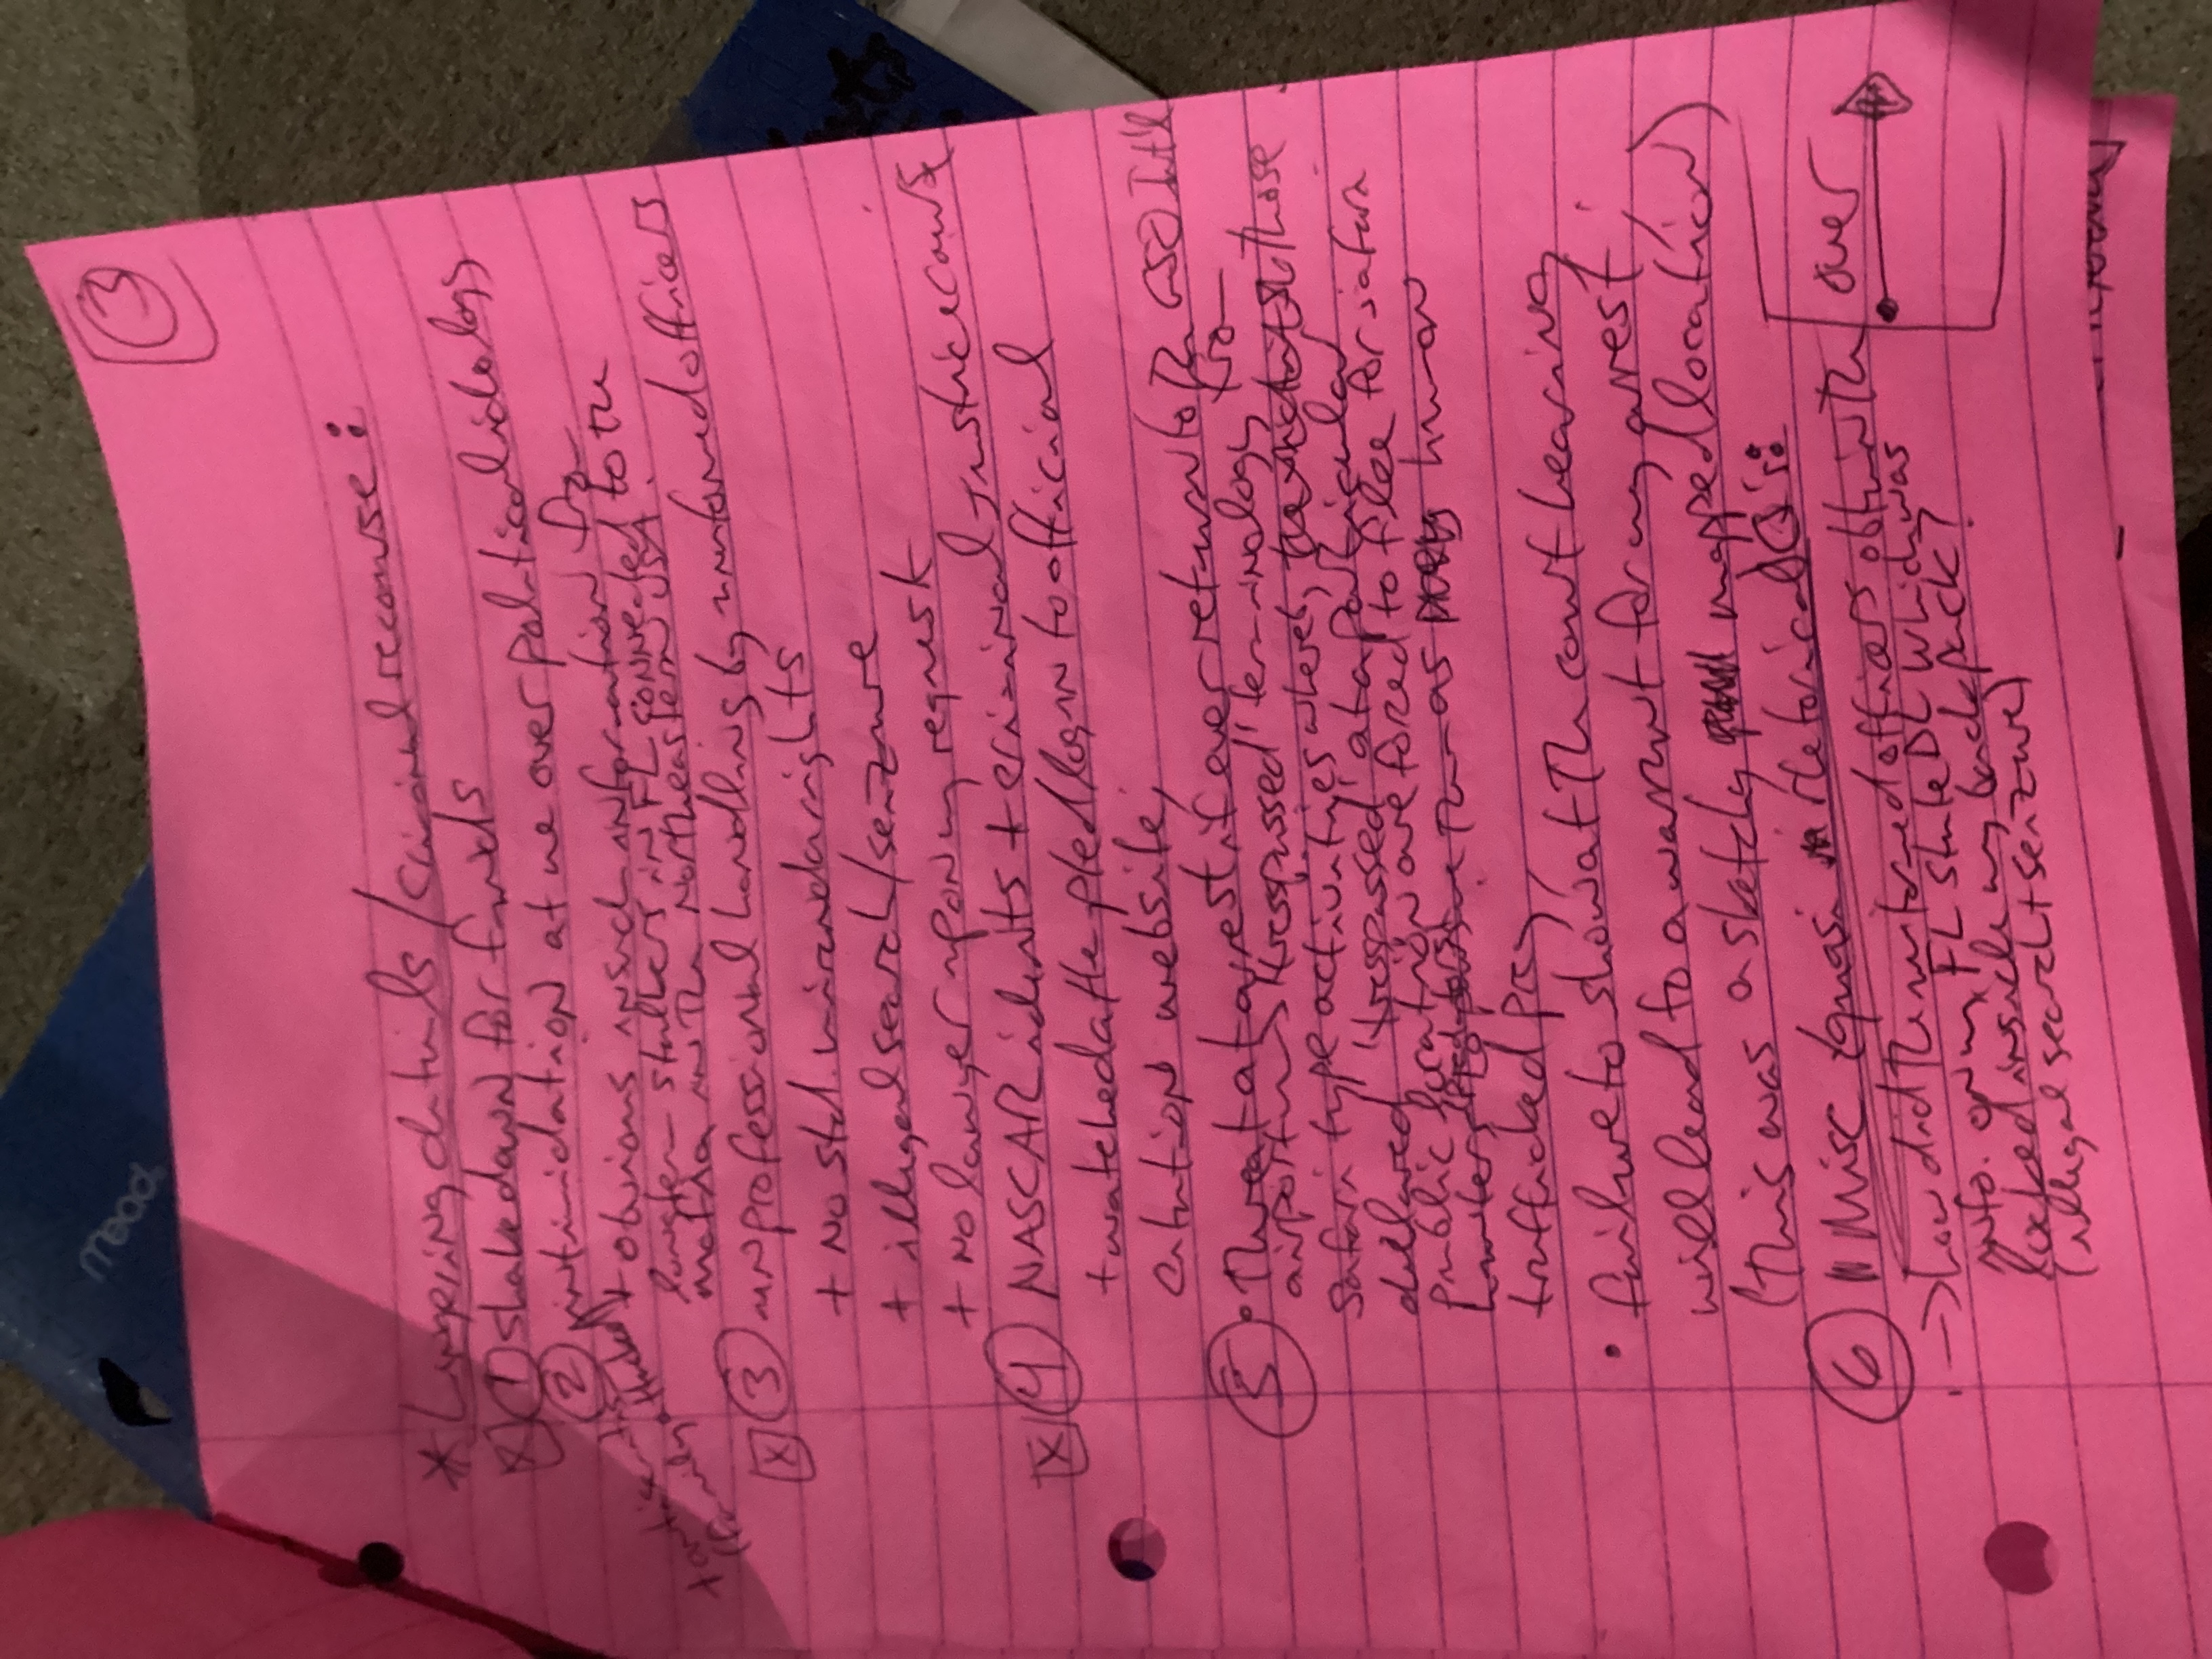 mead
3
* Lingering details/criminal recourse:
X 1 shakedown for funds
2 intimidation at me over political idology
+ obvious insich information
longterm stalkers in FL connected to the
mafia in the Northeastern USA.
(family attacked)
X 3 unprofessional handling by uniformed officers
+ No std. miranda rights
+ illegal search/seizure
+ No lawyer upon my request
X 4 NASCAR idents + criminal Justice court
+ watched attempted login to official
citation website;
5 • Threat at arrest if ever return to the GSO Int'l
airport "tresspassed" terminology from
safari type activities whereby those
dellared "tresspassed" at a particular
public location are forced to flee for safari
hunters them as human
trafficked prey,
• failure to show at the court hearing
will lead to a warrant for my arrest;
(this was a sketchy mapped location)
6 Misc (quasi rhetorical) Q's:
→ how did the uniformed officers obtain the
info. on my FL State DL which was
locked inside my backpack?
(illegal search + seizure)
over